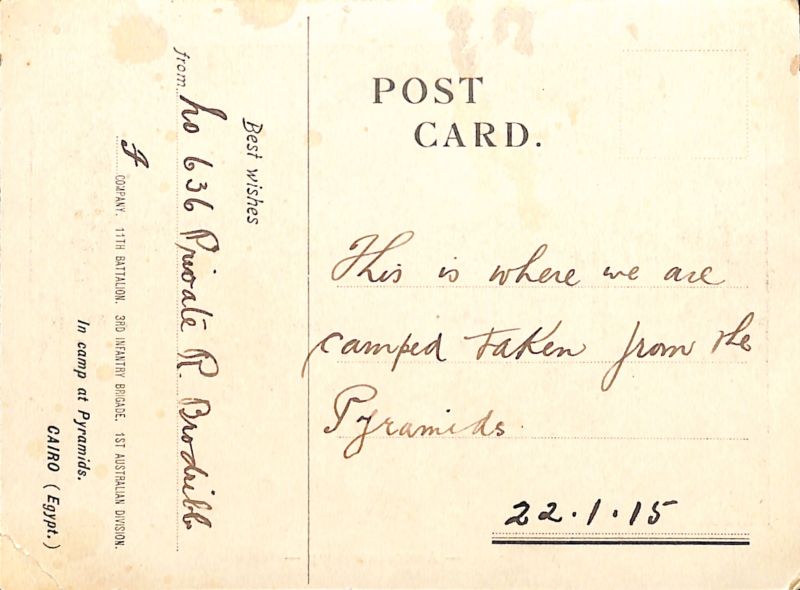 Best wishes
from No 636 Private R. Brodribb
F COMPANY. 11TH BATTALION. 3RD INFANTRY BRIGADE. 1ST AUSTRALIAN DIVISION.
In camp at Pyramids.
CAIRO (Egypt.)
POST
CARD.
This is where we are
camped taken from the
Pyramids.
22.1.15